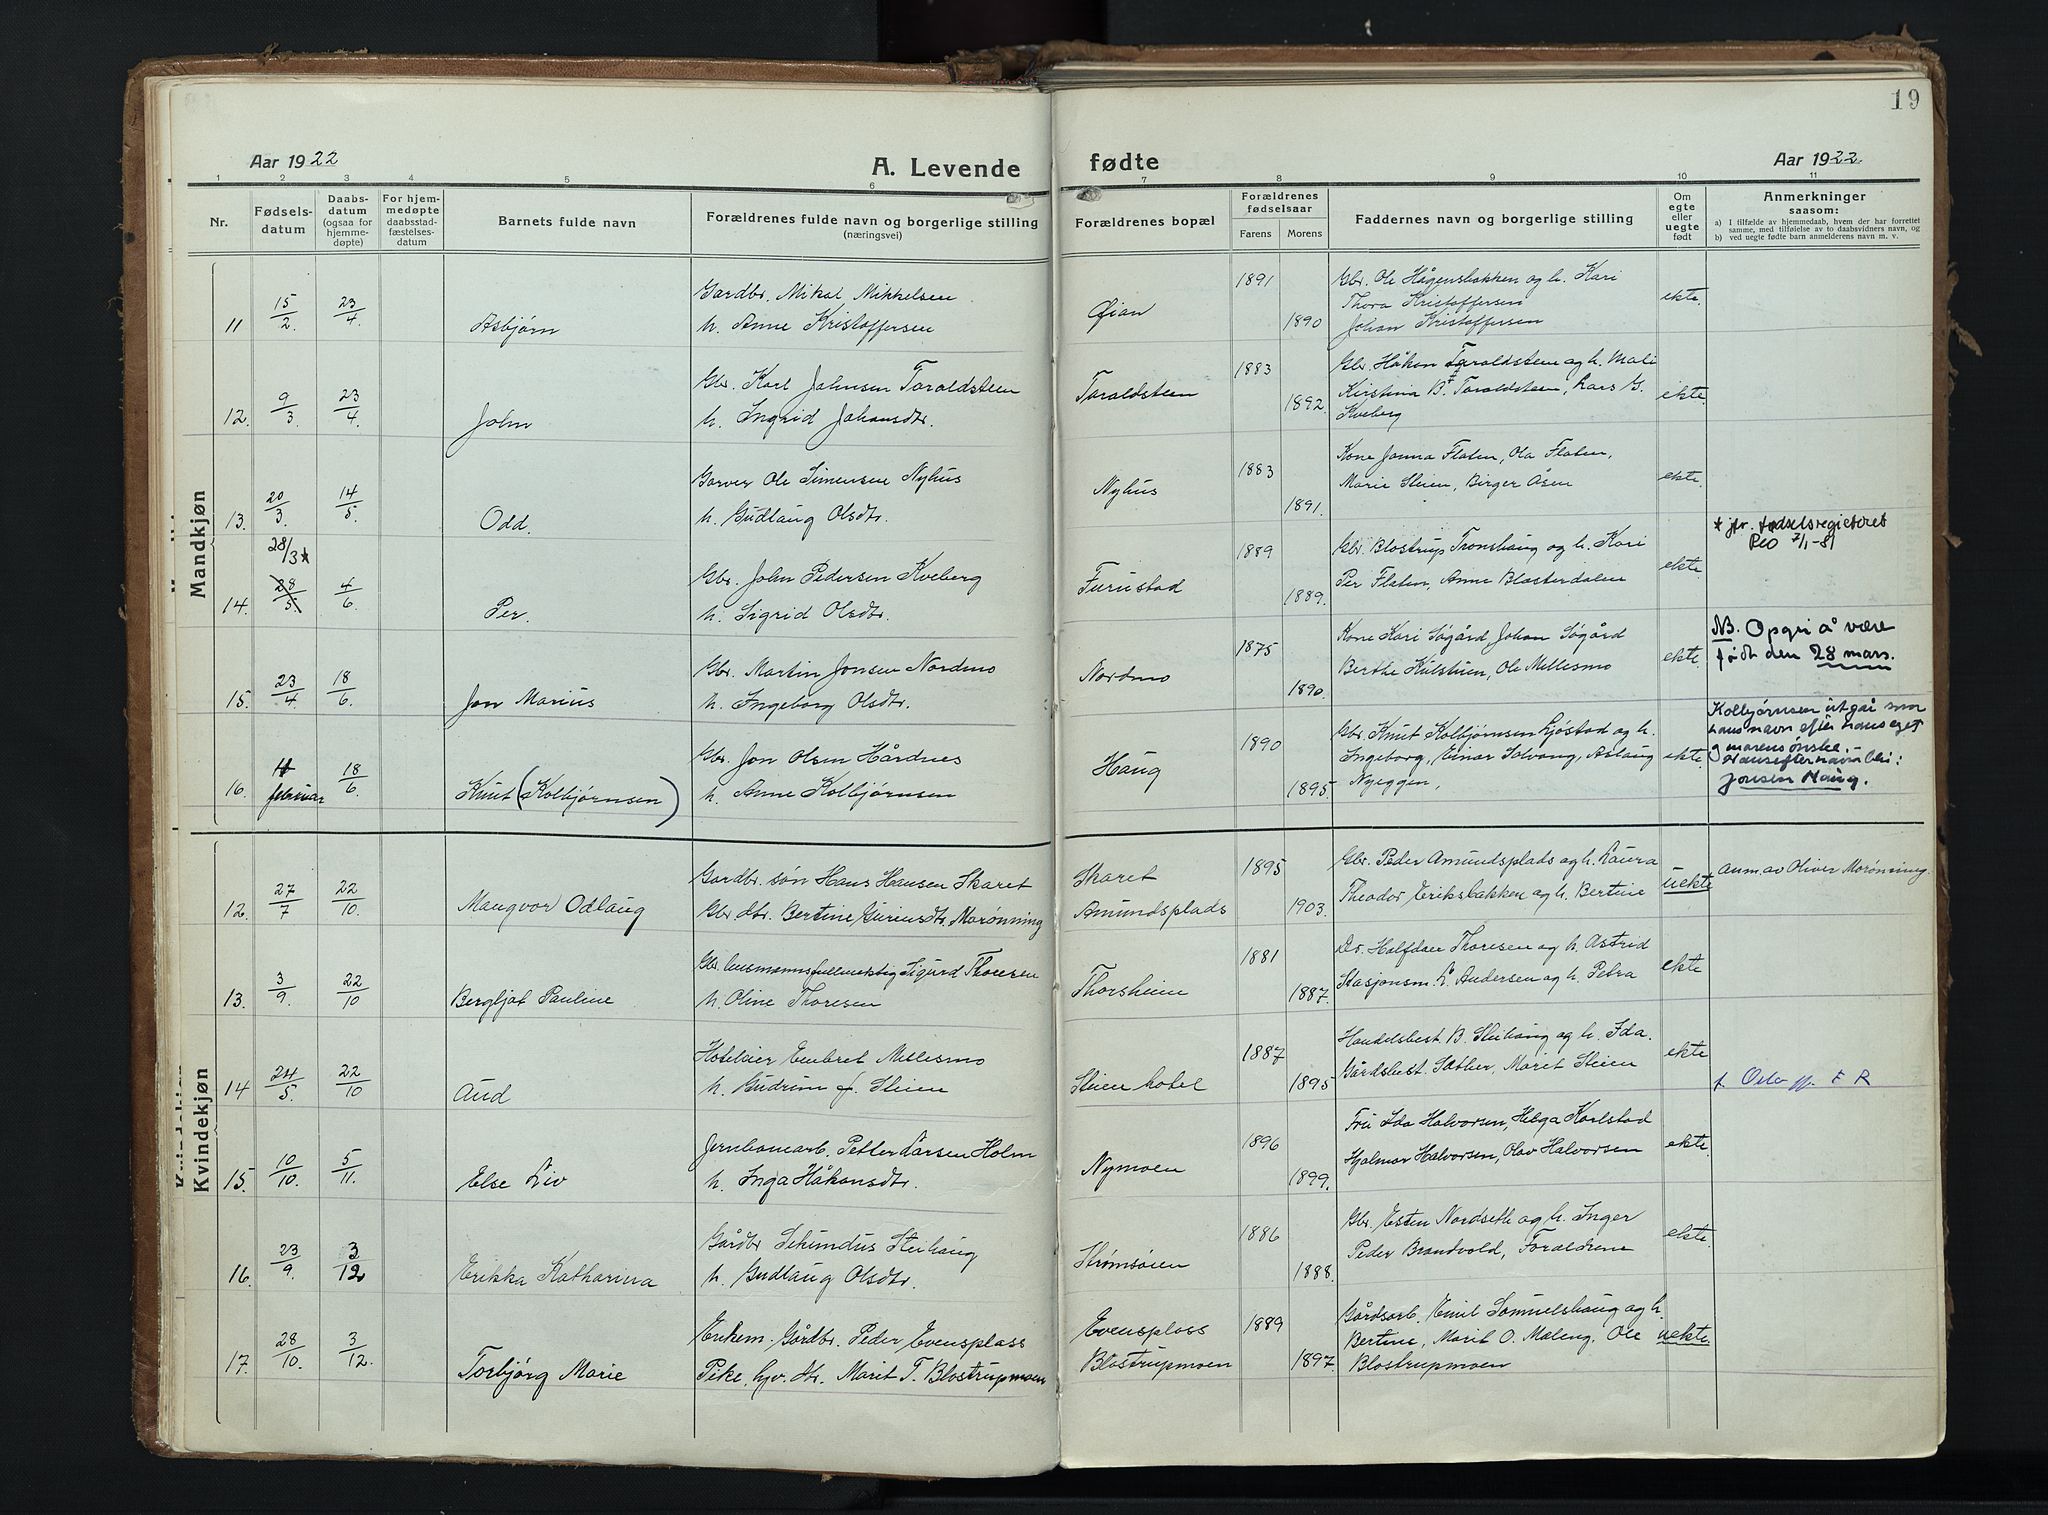 19
Aar 1922
A. Levende fødte
Aar 1922.
1 2 3 4 5 6 7 8 9 10 11
Nr.
Fødsels-
datum
Daabs-
datum
(ogsaa for
hjemme-
døpte)
For hjem-
medøpte
daabsstad-
fæstelses-
datum
Barnets fulde navn
Forældrenes fulde navn og borgerlige stilling
(næringsvei)
Forældrenes bopæl
Forældrenes
fødselsaar
Farens Morens
Faddernes navn og borgerlige stilling
Om
egte
eller
uegte
født
Anmerkninger
saasom:
a) I tilfælde av hjemmedaab, hvem der har forrettet
samme, med tilføielse av to daabsvidners navn, og
b) ved uegte fødte barn anmelderens navn m. v.
Mandkjøn
11 15/2 23/4 Asbjørn
Gardbr. Mikal Mikkelsen
h. Anne Kristoffersen
Øian
1891
1890
Gbr. Ole Hågensbakken og h. Kari
Thora Kristoffersen
Johan Kristoffersen
ekte.
12. 9/3 23/4 John
Gbr. Karl Johnsen Taraldsteen
h. Ingrid Johansdtr.
Taraldsteen
1883
1892.
Gbr. Håkon Taraldsteen og h. Mali
Kirstina B. Taraldsteen, Lars G.
Kveberg
ekte.
13. 20/3. 14/5 Odd.
Garver Ole Simensen Nyhus
h. Gudlaug Olsdtr.
Nyhus
1883
1891.
Kone Janna Flaten, Ola Flaten,
Marie Steien, Birger Åsen
ekte.
14. 28/3* 28/5. 4/6 Per.
Gbr. John Pedersen Kveberg
h. Sigrid Olsdtr.
Furustad
1889
1889.
Gbr. Blostrup Tronshaug og h. Kari
Per Flaten, Anne Blæsterdalen
ekte.
* jfr. fødselsregisteret
Peo 7/1-81
NB. Opgri å være
født den 28 mars.
15. 23/4 18/6. Jon Marius
Gbr. Martin Jonsen Nordmo
h. Ingeborg Olsdtr.
Nordmo
1875
1890.
Kone Kari Søgård Johan Søgård
Berthe Kulstuen, Ole Mellesmo
ekte.
16. februar 18/6. Knut (Kolbjørnsen)
Gbr. Jon Olsen Hårdnes
h. Anne Kolbjørnsen
Haug
1890
1895.
Gbr. Knut Kolbjørnsen Ljøstad og h.
Ingeborg, Einar Solvang, Aslaug
Nyeggen,
ekte.
Kolbjørnsen utgår som
hans navn efter hans eget
og morens ønske.
Hans efternavn blir:
Jonsen Haug.
Kvindekjøn
12. 27/7 22/10. Mangvor Odlaug
Gardbr. søn Hans Hansen Skaret
Gbr. dtr. Bertine Guriusdtr. Morønning
Skaret
Amundsplads
1895
1903.
Gbr. Peder Amundsplads og h. Laura
Theodor Eriksbakken og h. Bertine
uekte
anm. av Oliver Morønning.
13. 3/9. 22/10 Bergljot Pauline
Gbr. husmannsfullmektig Sigurd Thoresen
h. Oline Thoresen
Thorsheim
1881
1887.
Dr. Halfdan Thoresen og h. Astrid
Stasjonsm. L. Andersen og h. Petra
ekte
14 24/5. 22/10 Aud
Hoteleier Embret Mellesmo
h. Gudrun f. Steien
Steien hotel
1887
1895
Handelsbest. B. Steihaug og h. Ida.
Gårdsbest. Sæther, Marit Steien
ekte
15. 10/10. 5/11. Else Liv
Jernbanearb. Petter Larsen Holm
h. Inga Håkonsdtr.
Nymoen
1896
1899.
Fru Ida Halvorsen, Helga Karlstad
Hjalmar Halvorsen, Olav Halvorsen
ekte.
16. 23/9. 3/12 Erikka Katharina
Gårdbr Sekundus Steihaug
h. Gudlaug Olsdtr.
Strømsøien
1886
1888.
Gbr. Esten Nordseth og h. Inger
Peder Brandvold, Foraldrene
ekte.
17. 28/10. 3/12. Torbjørg Marie
Enkem. Gårdbr. Peder Evensplass
Pike, hjv. dtr. Marit T. Blostrupmoen
Evensplass
Blostrupmoen
1889
1897.
Gårdsarb. Emil Samuelshaug og h.
Bertine, Marit O. Maleng. Ole
Blostrupmoen
uekte.